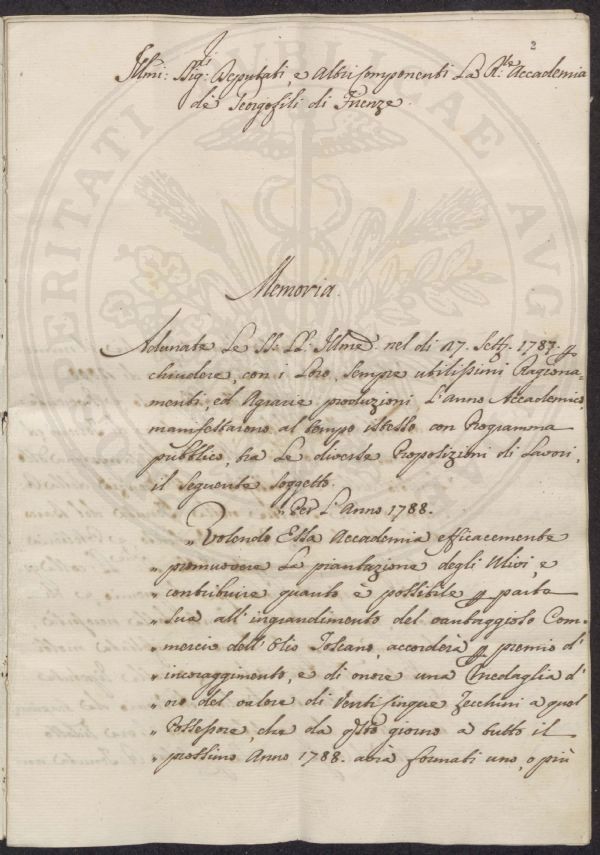 2
Illmi: Sigri: Deputati, e Altri Componenti La Rle: Accademia
de' Georgofili di Firenze.
Memoria.
Adunate Le SS: LL: Illme: nel di 17. Settr. 1787. p
chiudere, con i Loro, sempre utilissimi Ragiona-
menti, ed Agrarie produzioni L'anno Accademico,
manifestarono al tempo istesso con Programma
pubblico, tra Le diverse Proposizioni di Lavori,
il seguente soggetto.
"Per L'Anno 1788.
" Volendo Essa Accademia efficacemente
" promuovere La piantazione degli Ulivi, e
" contribuire quanto è possibile p parte
" sua all'ingrandimento del vantaggioso Com-
" mercio dell'Olio Toscano, accorderà p premio d'
" incoraggimento, e di onore una Medaglia d'
" oro del valore di Venticinque Zecchini a quel
" Possessore, che da qsto giorno a tutto il
" prossimo Anno 1788. avrà formati uno, o più